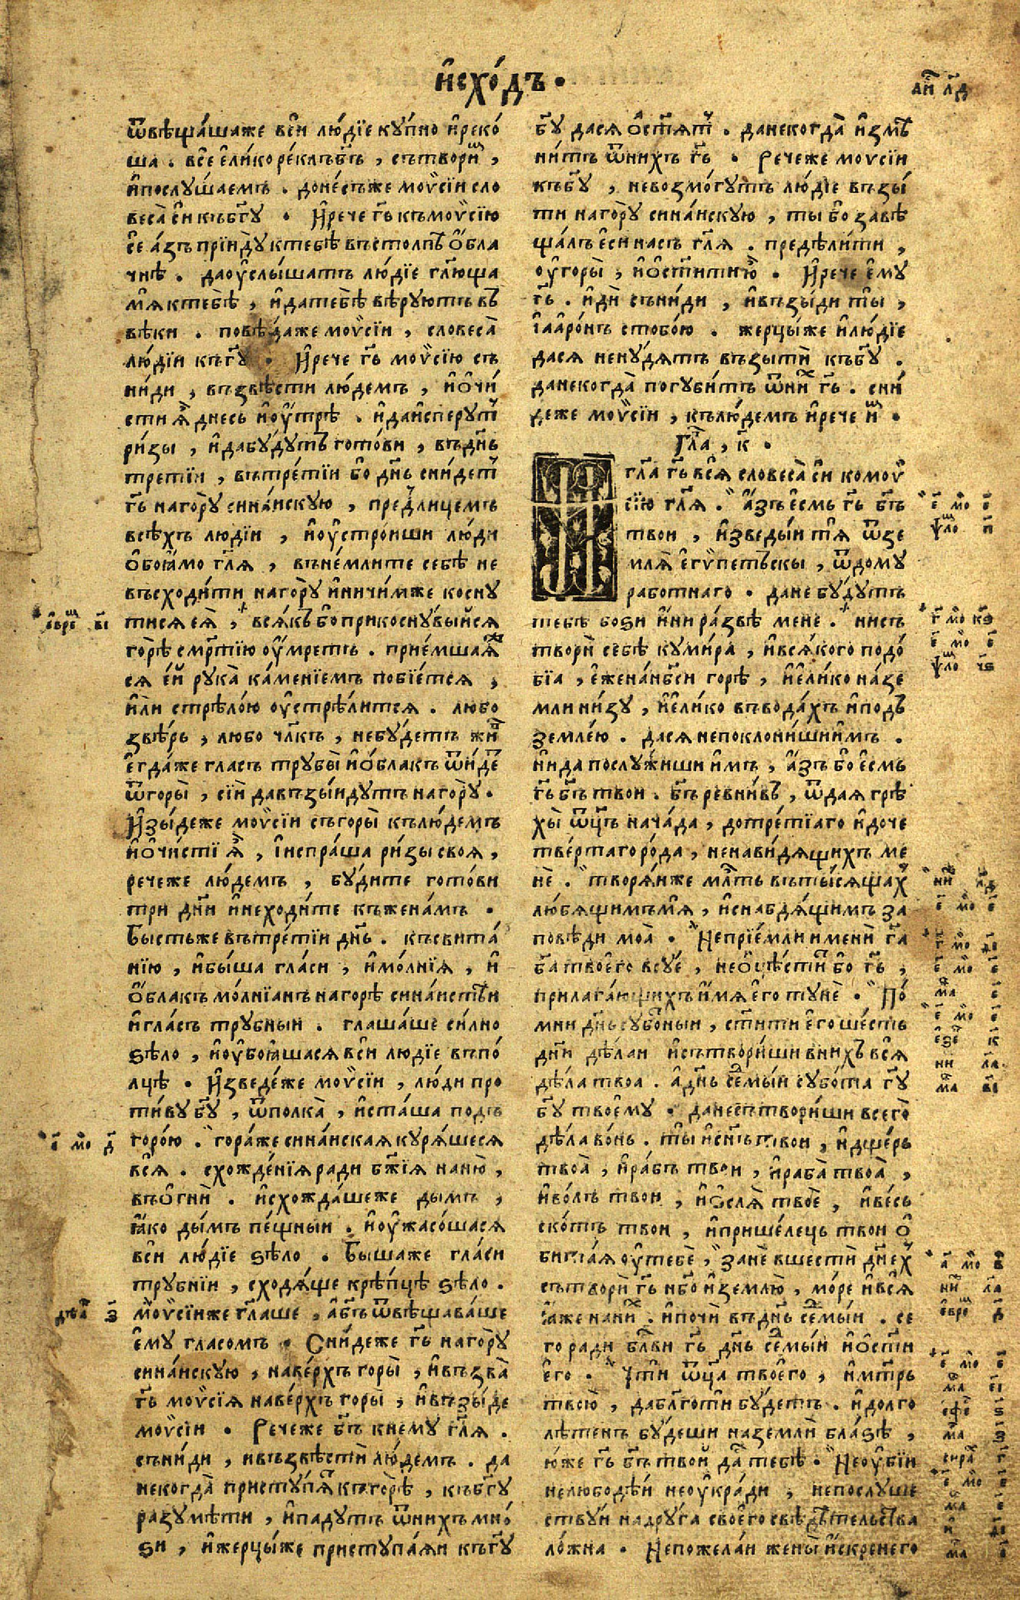 и҆схо́дъ.
аі҃ л҃д
ѿвѣща́шаже вси̑ лю́дїе ку́пно и҆реко́
ша . все̑ є҆ли́коре́клъ б҃ъ , сътвори̑ ,
и҆послу́шаемъ . доне́сьже моѷсїи сло
веса̀ си̑ къб҃гу . И҆рече г҃ъ къмоѷсїю
се̑ а҆зъ прїи́ду ктебѣ̀ въстолпѣ̀ ѻ҆́бла
чнѣ . даѹ҆слы́шатъ лю́дїе гл҃юща
мѧ̀ ктебѣ̀ , и҆датебѣ̀ вѣ́руютъ въ
вѣ́ки . повѣ́даже моѷсїи , словеса̀
лю́дїи къг҃у . И҆рече г҃ъ моѷсїю съ
ни́ди , възвѣ́сти лю́демъ , и҆ѻ҆чи́
сти ѧ҆̀ днесь и҆ѹ҆́трѣ . и҆даи҆сперу́тъ
ри́зы , и҆дабу́дутъ гото́ви , въд҃нь
тре́тїи , вътре́тїи бо д҃нь сни́детъ
г҃ь наго́ру сина́искую , пред̾лице́мъ
всѣ́хъ лю́дїи , и҆ѹ҆стро́иши лю́ди
ѻ҆боꙗ́мо гл҃ѧ , въне́млите себѣ̀ не
въсходи́ти наго́ру и҆ничи́мже косну
тисѧ є҆ѧ̀ , всѧ́къ бо прикосну́выисѧ
го́рѣ сме́ртїю ѹ҆́мретъ . прїе́мшаѧ
сѧ є҆́и рука̀ ка́менїемъ побїе́тсѧ ,
и҆лѝ стрѣло́ю ѹ҆стрѣ́литсѧ . лю́бо
звѣ́рь , лю́бо чл҃къ , небу́детъ жи́
Е҆гда́же гла́съ трубы̀ и҆ѻ҆́блакъ ѿи́де
ѿгоры̀ , сїи̑ давъзы́идутъ наго́ру .
И҆зы́деже моѷсїи съгоры̀ къ лю́демъ
и҆ѻ҆чи́сти ѧ҆̀ , и҆испра́ша ри́зы своѧ ,
речеже лю́демъ , бу́дите гото́ви
три дн҃и и҆неходи́те къжена́мъ .
Бы́стьже вътре́тїи д҃нь . късвита́
нїю , и҆бы́ша гла́си , и҆мо́лнїѧ , и҆
ѻ҆́блакъ мо́лнїанъ нагорѣ̀ сина́истѣи
и҆гла́съ тру́бныи . глаша́ше си́лно
ѕѣло̀ , и҆ѹ҆боꙗ́шасѧ вси̑ лю́дїе въпо
лцѣ̀ . И҆зведе́же моѷсїи , лю́ди про
ти́ву б҃гу , ѿполка̀ , и҆ста́ша под̾
горо́ю . гора́же сина́искаѧ куря́шесѧ
всѧ̀ . схожде́нїѧ ра́ди б҃жїѧ наню̀ ,
въѻ҆гнѝ . и҆схожда́шеже ды́мъ ,
ꙗ҆́ко ды́мъ пе́щныи . и҆ѹ҆жасо́шасѧ
вси̑ лю́дїе ѕѣло̀ . Бы́шаже гла́си
тру́бнїи , сходѧ́ще крѣ́пцѣ ѕѣло̀ .
моѷсїиже гл҃аше , а҆б҃ъ ѿвѣщава́ше
є҆му̀ гла́сомъ . Сни́деже г҃ь наго́ру
сина́искую , наве́рхъ горы̀ , и҆възва̀
г҃ь моѷсїѧ наве́рхъ горы̀ , и҆възы́де
моѷсїи . Рече́же б҃ъ кнему̀ гл҃ѧ .
съни́ди , и҆възвѣстѝ лю́демъ . да
некогда̀ присту́пѧ къгорѣ̀ , къб҃гу
разумѣ́ти , и҆паду́тъ ѿни́хъ мно́
ѕи , и҆жерцы́же приступа́ѧи къг҃у
б҃гу да сѧ ѻ҆сти́тъ . данекогда̀ и҆змѣ
ни́тъ ѿни́хъ г҃ь . Рече́же моѷсїи
къб҃гу , невозмо́гутъ лю́дїе възы́
ти наго́ру сина́искую , ты́ бо завѣ
ща́лъ є҆си̑ насъ гл҃ѧ . предѣли́ти ,
ѹ҆горы̀ ; и҆ѻ҆сти́ти ю҆̀ . И҆рече є҆му
г҃ь . и҆ди̑ съни́ди , и҆възы́ди ты̀ ,
і҆аарѻ́нъ стобо́ю . жерцы́же и҆лю́дїе
дасѧ ненудѧ́тъ възы́ти къб҃у .
данекогда̀ погуби́тъ ѿни́ г҃ь . сни́
деже моѷсїи , къ лю́демъ и҆рече и҆́мъ .
Гл҃а , к҃ .
И҆ гл҃а г҃ъ всѧ̀ словеса̀ си̑ комоѷ
сїю гл҃ѧ . А҆́зъ є҆́смь г҃ь б҃ъ
тво́и , и҆зведы́и тѧ̀ ѿзе
млѧ̀ є҆гѵпе́тьскы , ѿдо́му
рабо́тнаго . дане бу́дутъ
тебѣ̀ бо́ѕи и҆ни̑ ра́звѣ менѐ . нисъ
твори̑ себѣ̀ куми́ра , и҆всѧ́кого подо́
бїа , є҆́жена́нб҃си горѣ̀ , и҆є҆ли́ко на́зе
мли ни́зу , и҆є҆ли́ко въвода́хъ и҆под̾
земле́ю . дасѧ непоклони́ши и҆́мъ .
нида послу́жиши и҆́мъ , а҆́зъ бо є҆́смь
г҃ь б҃ъ тво́и . б҃ъ ревни́въ , ѿдаѧ грѣ
хы̀ ѿц҃ъ нача́да , дотре́тїаго и҆доче
тве́ртагоро́да , ненави́дѧщихъ ме
нѐ . творѧ́иже мл҃ть вътысѧщах̾
лю́бѧщимъ мѧ̀ , и҆снабдѧ́щимъ за
по́вѣди моѧ̀ . Неприе́мли и҆мени г҃а
б҃а твоего̀ всу́е , неѻ҆чѣ́стит̾ бо г҃ь ,
прилага́ющихъ и҆́мѧ є҆го̀ ту́не . По́
мни д҃нь субо́тныи , ст҃и́ти є҆го̀ ше́сть
дн҃и дѣ́лаи и҆сътвори́ши вни́хъ всѧ̀
дѣ́ла твоа . а҆д҃нь се҃мы́и субо́та г҃у
б҃гу твоему̀ . данесътвори́ши всего̀
дѣ́ла во́нь . ты̀ и҆с҃нъ тво́и , и҆дще́рь
твоа̀ , и҆ра́бъ тво́и , и҆раба̀ твоа̀ ,
и҆во́лъ тво́и , и҆ѻ҆слѧ̀ твоѐ , и҆ве́сь
ско́тъ тво́и , и҆прише́лець тво́и ѻ҆
бита́ѧ ѹ҆тебѐ , занѐ вше́сти дн҃ех̾
сътвори̑ г҃ь н҃бо и҆зе́млю , мо́ре и҆всѧ̀
ꙗ҆́же на ни́хъ . и҆почи̑ въд҃нь се҃мы́и . се
го ра́ди бл҃ви г҃ь д҃нь се҃мы́и и҆ѻ҆ст҃и
є҆го̀ . Чти̑ ѿц҃а твоего̀ , и҆мт҃рь
твою̀ , дабл҃готи̑ бу́детъ . и҆долго
лѣ́тенъ бу́деши наземлѝ бла́ѕѣ ,
ю҆́же г҃ь б҃ъ тво́и да́стъ тебѣ̀ . Неѹ҆бїи̑
нелюбодѣ́и неѹ҆кради̑ ; непослуше
ству́и надру́га своего̀ свѣдѣ́тельства
ло́жна . Непожела́и жены̀ и҆́скренего